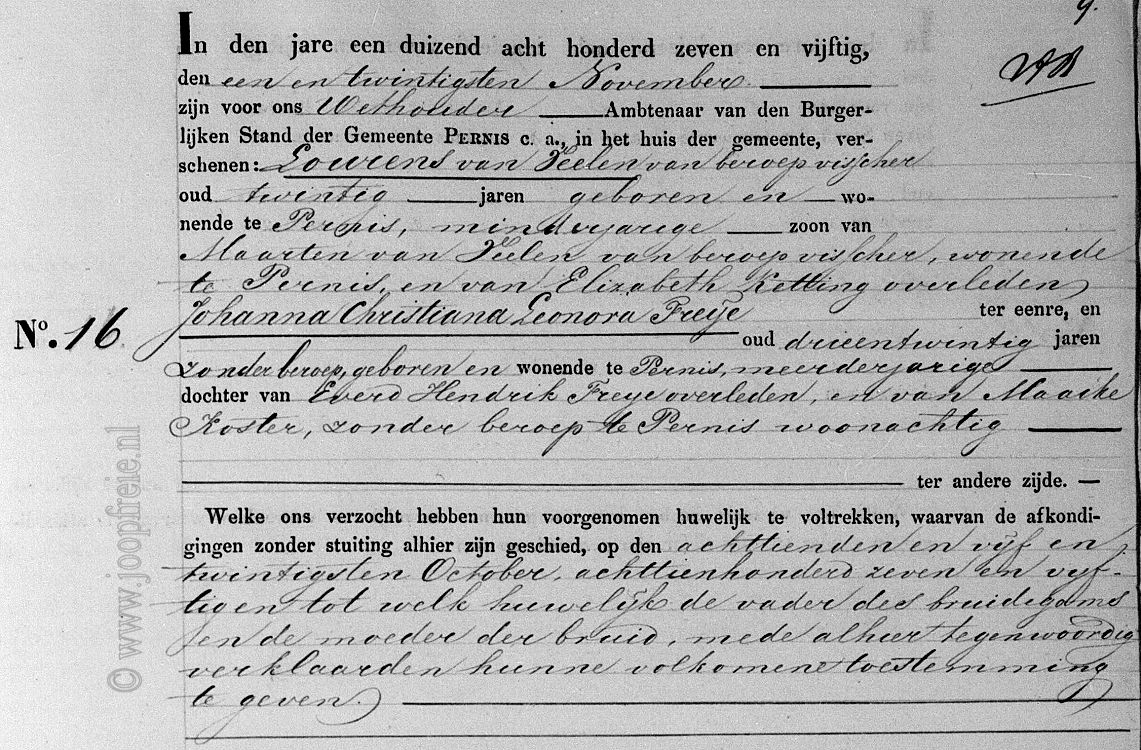 9.
In den jare een duizend acht honderd zeven en vijftig,
den een en twintigsten November
zijn voor ons Wethouder Ambtenaar van den Burger-
lijken Stand der Gemeente PERNIS c. a., in het huis der gemeente, ver-
schenen: Lourens van Veelen van beroep visscher
oud twintig jaren geboren en wo-
nende te Pernis, minderjarige zoon van
Maarten van Veelen van beroep visscher, wonende
te Pernis, en van Elizabeth Ketting overleden
Johanna Christiana Leonora Freije ter eenre, en
No. 16.
oud drieentwintig jaren
zonder beroep, geboren en wonende te Pernis, meerderjarige
dochter van Everd Hendrik Freye overleden, en van Maaike
Koster, zonder beroep te Pernis woonachtig
ter andere zijde.
Welke ons verzocht hebben hun voorgenomen huwelijk te voltrekken, waarvan de afkondi-
gingen zonder stuiting alhier zijn geschied, op den achttienden en vijf en
twintigsten October, achttienhonderd zeven en vijf-
tig en tot welk huwelijk de vader des bruidegoms
en de moeder der bruid, mede alhier tegenwoordig
verklaarden hunne volkomene toestemming
te geven.
© www.joopfreie.nl